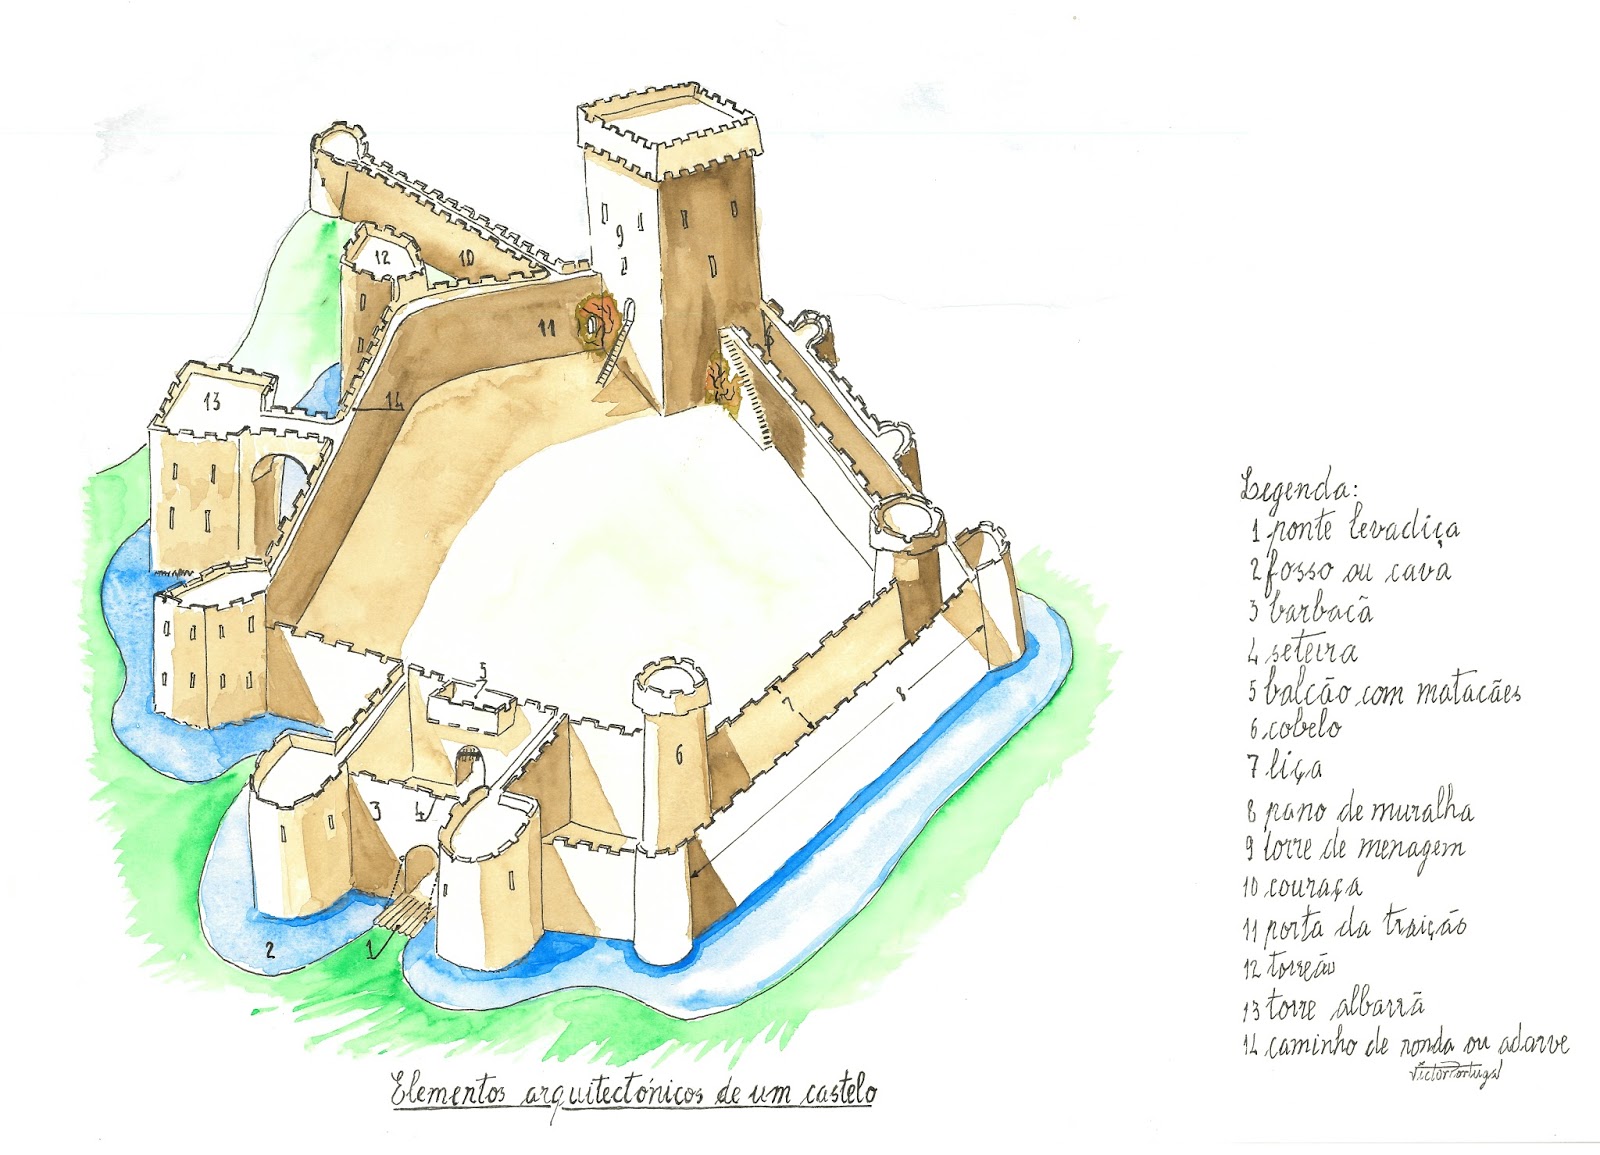 12
10
9
11
13
14
5
8
7
6
3
4
2
1
Legenda:
1 ponte levadiça
2 fosso ou cava
3 barbacã
4 seteira
5 balcão com matacães
6 cobelo
7 liça
8 pano de muralha
9 torre de menagem
10 couraça
11 porta da traição
12 torreão
13 torre albarrã
14 caminho de ronda ou adarve
Victor Portugal
Elementos arquitectónicos de um castelo